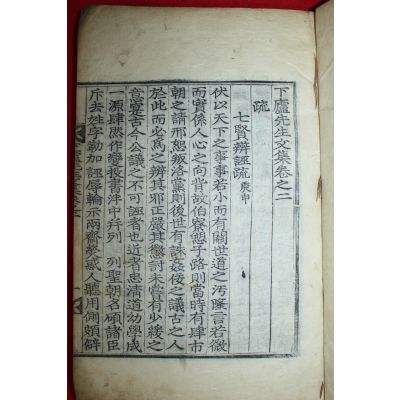 下廬先生文集卷之二
疏
七賢辨誣疏 庚申
伏以天下之事事若小而有關世道之汚隆言若微
而實係人心之向背故伯寮愬子路則當時有肆市
朝之請邢恕叛洛黨則後世有誅姦侫之議古之人
於此而必爲之辨其邪正嚴其懲討未嘗有少緩之
意寔古今公議之不可誣者也近者忠淸道幼學成
一源肆然作變投書泮中幷列 列聖朝名碩諸臣
斥去姓字勒加誣辱輪示兩齋熒惑人聽用側頗僻